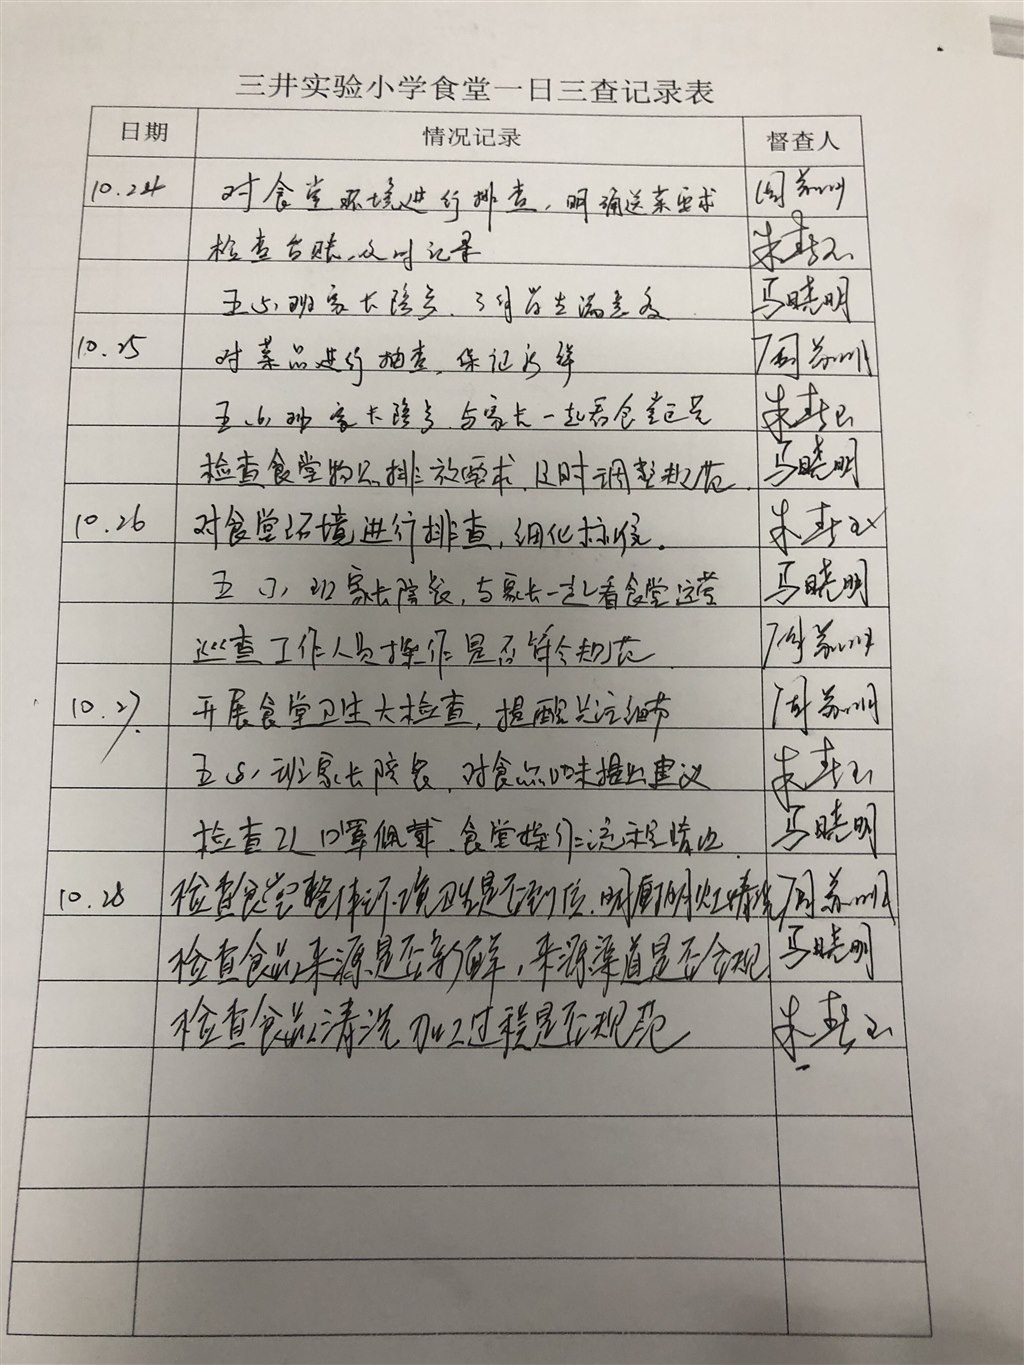 三井实验小学食堂一日三查记录表
日期 情况记录 督查人
10.24 对食堂环境进行排查，明确送菜要求 周苏州
检查台账、及时记录 朱春玉
五（5）班家长陪 马晓明
10.25 对菜品进行抽查，保证新鲜 周苏州
五（6）班家长陪 与家长一起看食堂 朱春玉
检查食堂物品排放要求，及时调整规范 马晓明
10.26 对食堂环境进行排查，细化 朱春玉
五（7）班家长陪餐，与家长一起看食堂运营 马晓明
巡查工作人员操作是否符合规范 周苏州
10.27 开展食堂卫生大检查，提醒关注细节 周苏州
五（8）班家长陪餐，对食品口味提出建议 朱春玉
检查 口罩佩戴、食堂操作流程 马晓明
10.28 检查食堂整体环境卫生是否到位，明厨明灶情况 周苏州
检查食品来源是否新鲜，来源渠道是否合规 马晓明
检查食品清洗加工过程是否规范 朱春玉